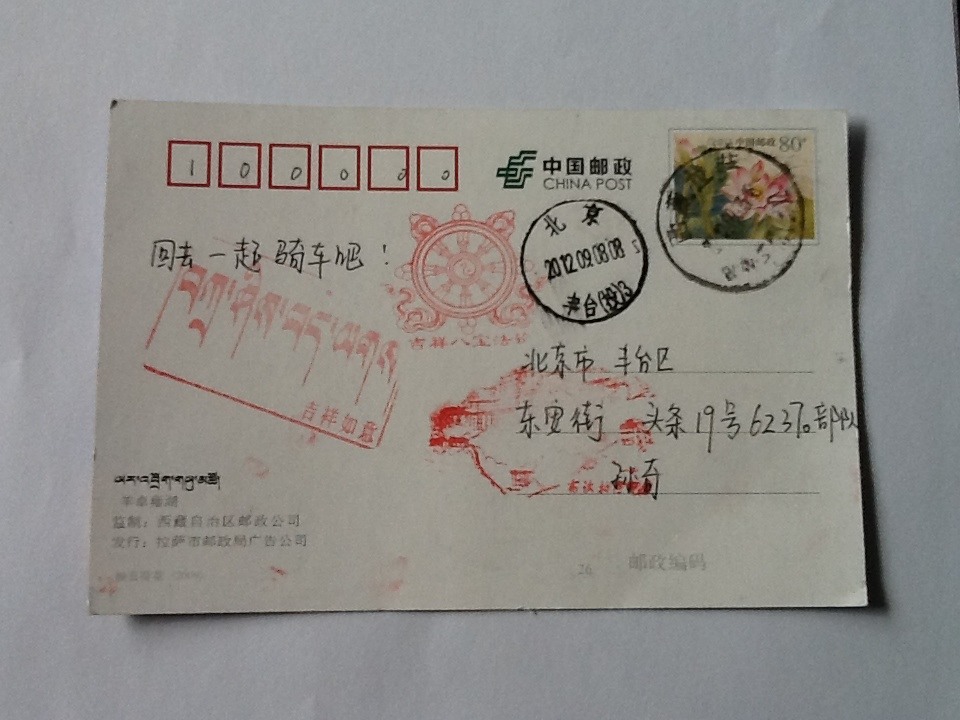 100000
中国邮政
CHINA POST
中国邮政 80分
回去一起骑车吧！
北京
2012.09.08.08
丰台(投)3
吉祥八宝法轮
吉祥如意
北京市 丰台区
东安街 头条19号6237。部队
孙奇
布达拉
羊卓雍湖
监制：西藏自治区邮政公司
发行：拉萨市邮政局广告公司
26 邮政编码